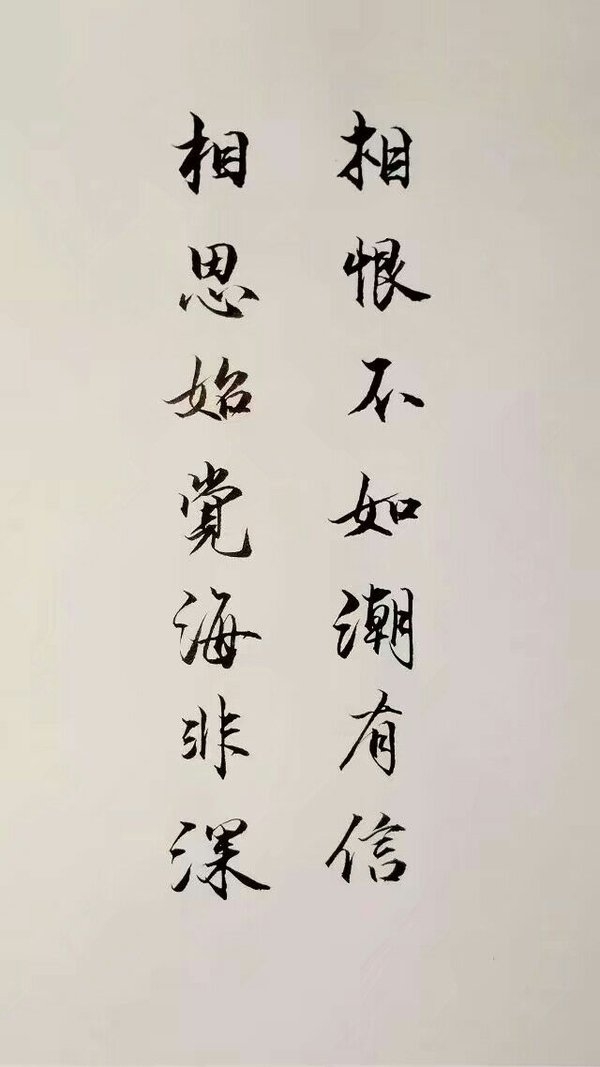 相恨不如潮有信
相思始觉海非深